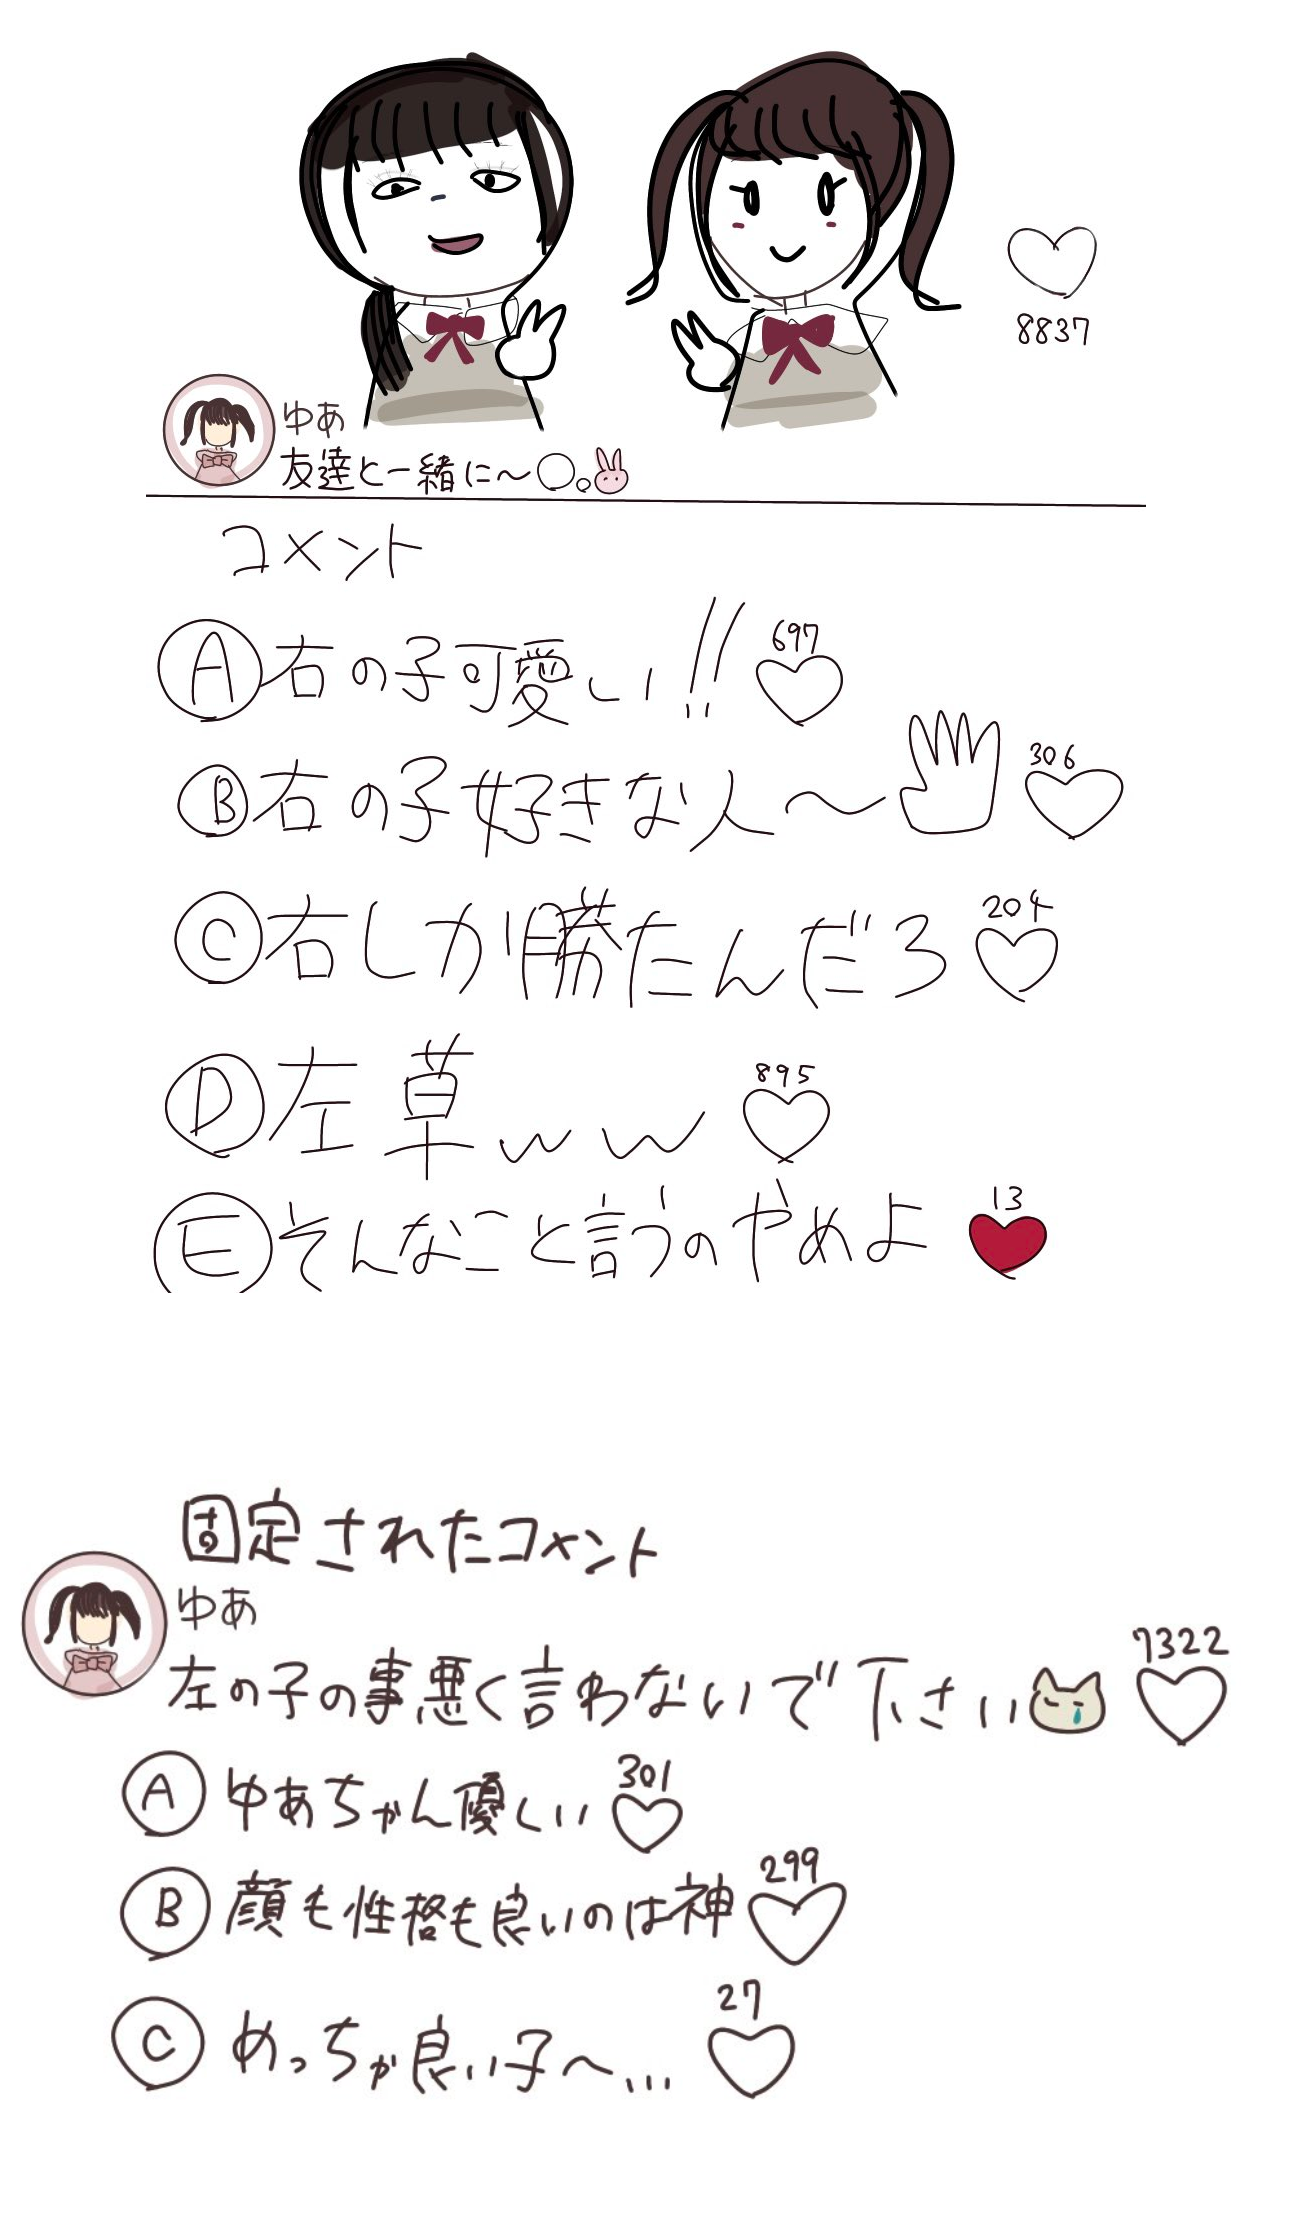 8837
ゆあ
友達と一緒に〜
コメント
A 右の子可愛い!! 697
B 右の子好きな人〜 306
C 右しか勝たんだろ 204
D 左草ww 895
E そんなこと言うのやめよ 13
固定されたコメント
ゆあ
左の子の事悪く言わないで下さい 7322
A ゆあちゃん優しい 301
B 顔も性格も良いのは神 299
C めっちゃ良い子〜... 27